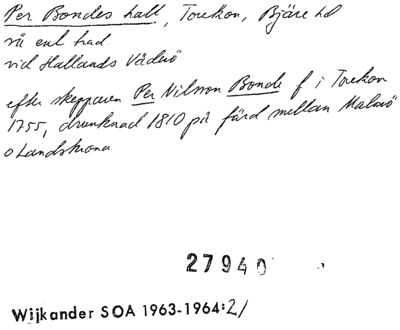 Per Bondes hall, Torekov, Bjäre hd
så enl trad
vid Hallands Väderö
efter skepparen Per Nilsson Bonde f i Torekov
1755, drunknad 1810 på färd mellan Malmö
o Landskrona
27940
Wijkander SOA 1963-1964:21